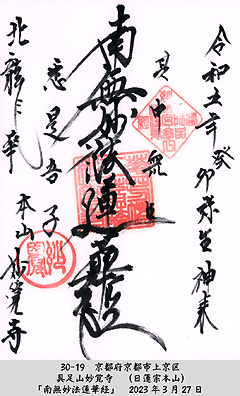 令和五年癸卯弥生
其中衆生
南無妙法蓮華経
悉是吾子
北龍華
本山妙覚寺
30-19 京都府京都市上京区
具足山妙覚寺 (日蓮宗本山)
「南無妙法蓮華経」 2023年3月27日